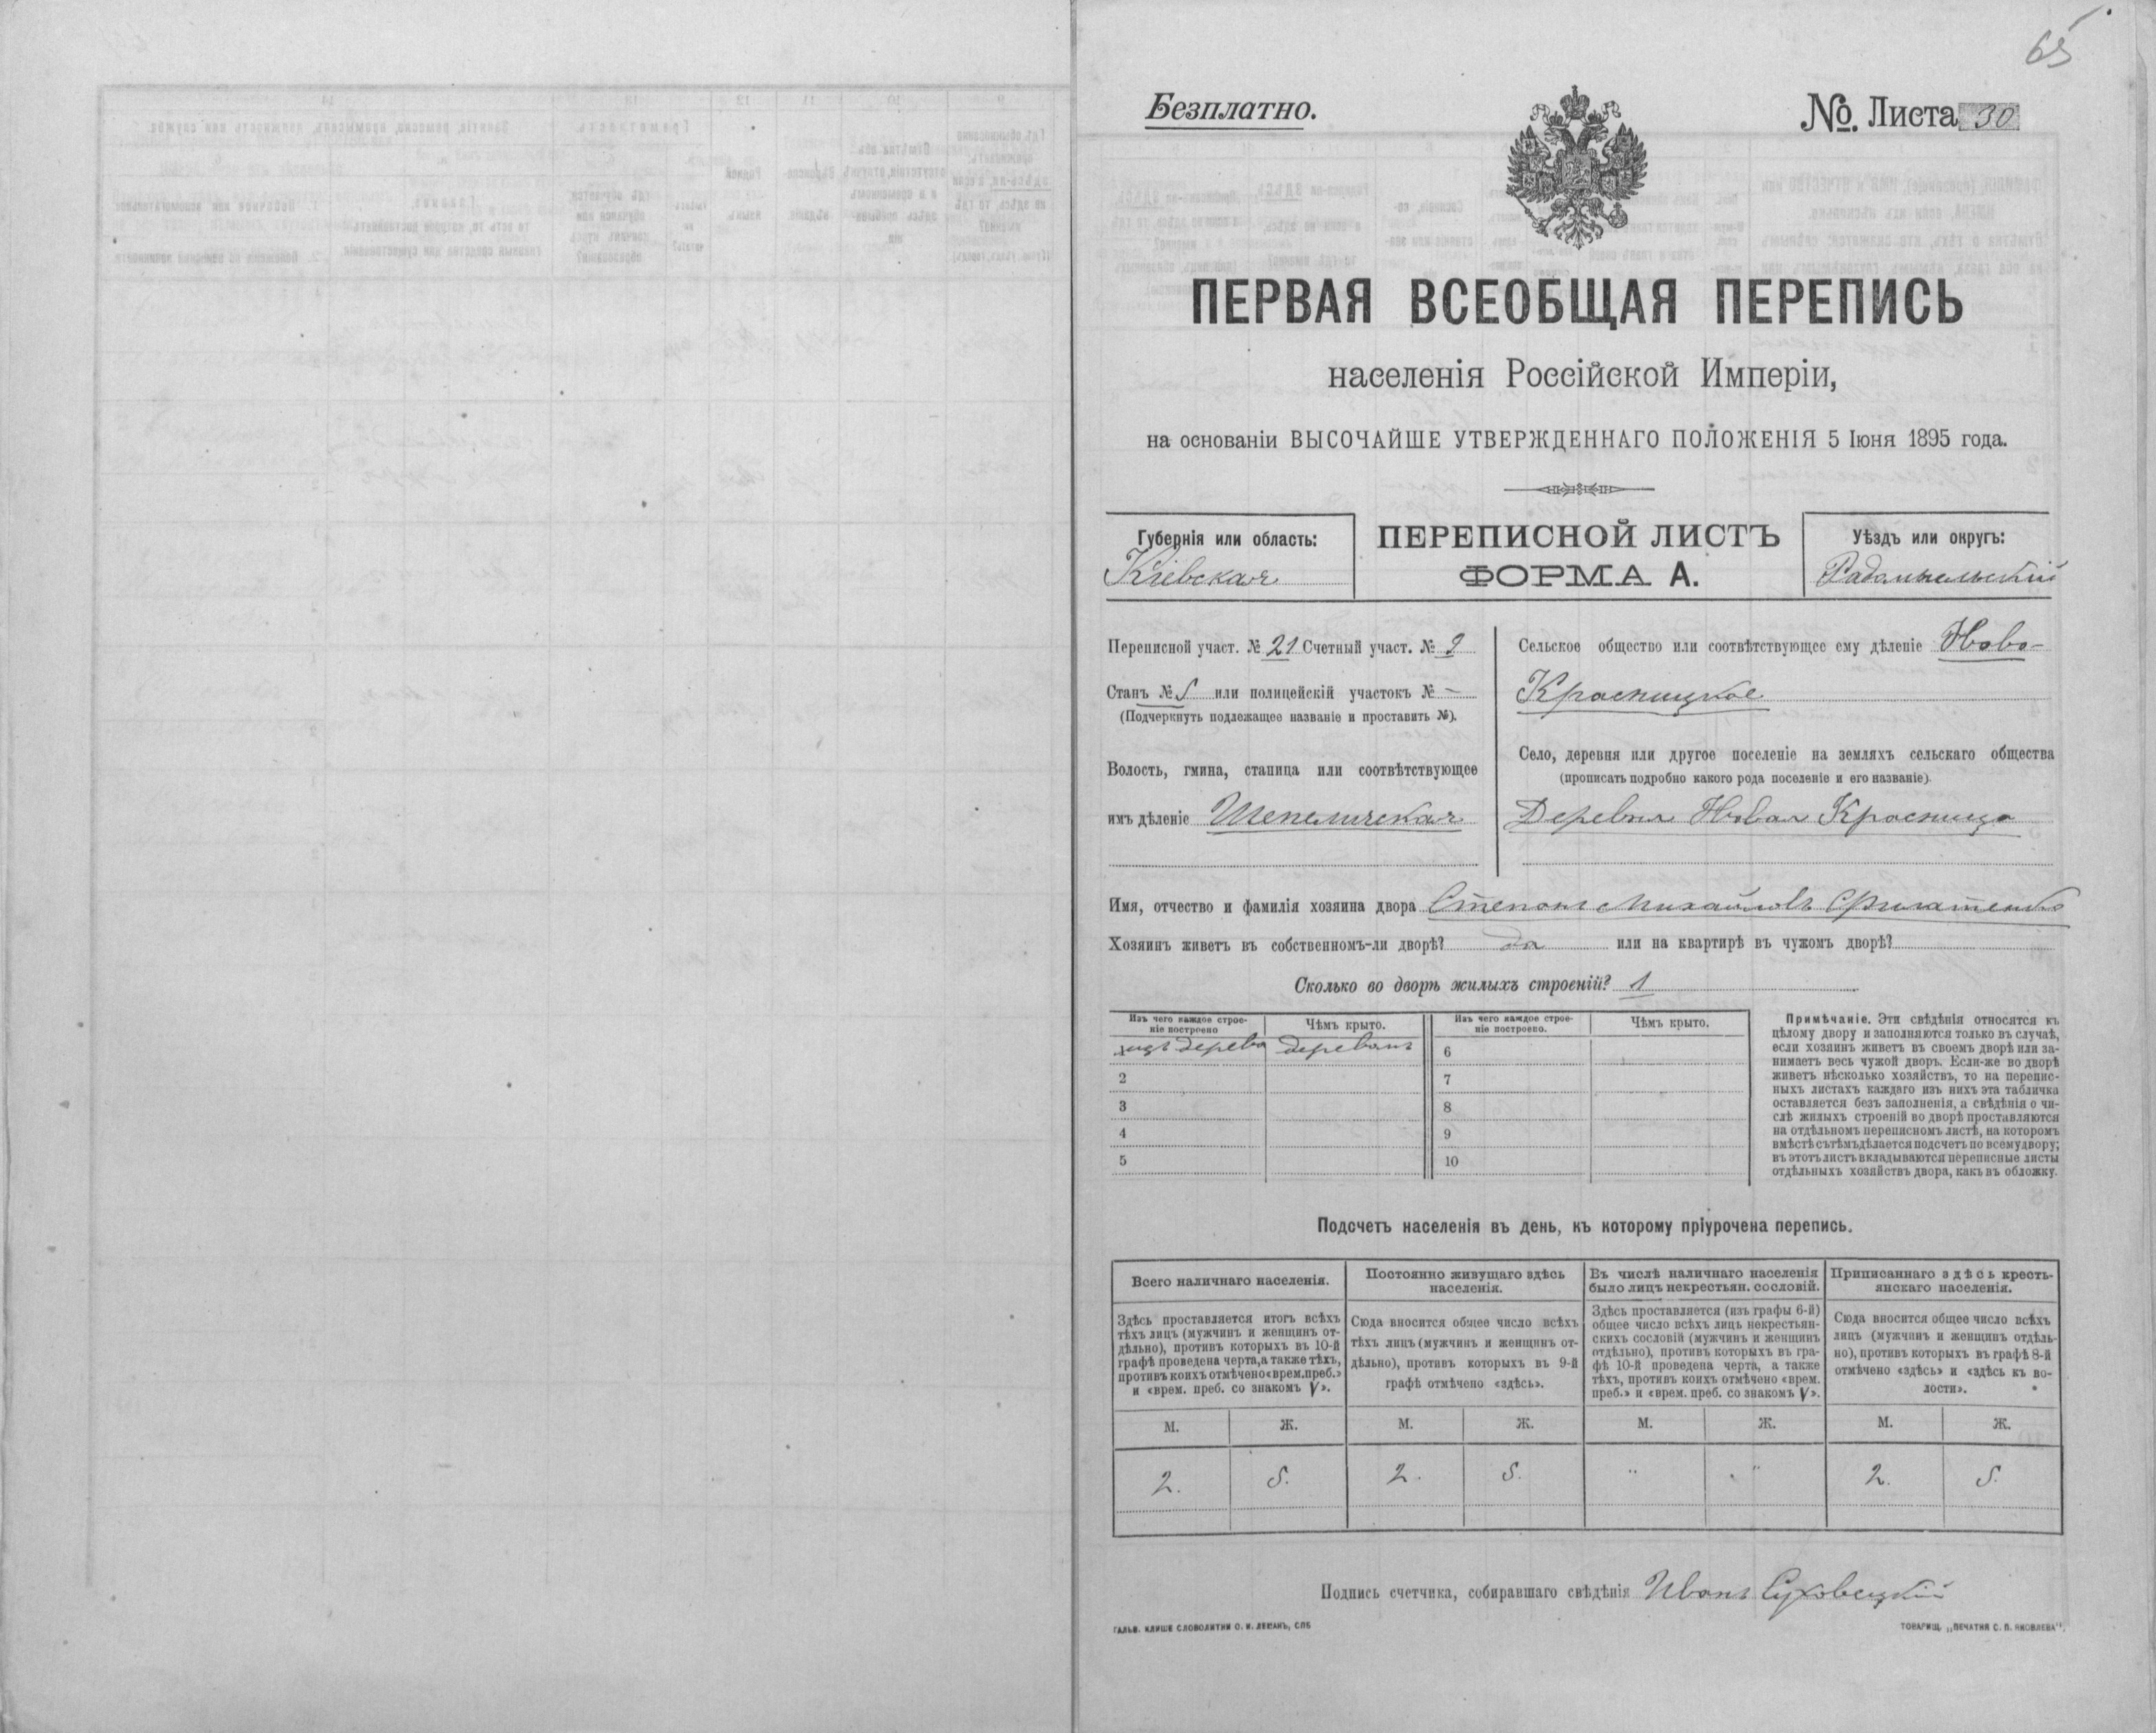 65
Безплатно.
№. Листа 30
ПЕРВАЯ ВСЕОБЩАЯ ПЕРЕПИСЬ
населенія Россійской Имперіи,
на основаніи ВЫСОЧАЙШЕ УТВЕРЖДЕННАГО ПОЛОЖЕНІЯ 5 Іюня 1895 года.
Губернія или область:
Кіевская
ПЕРЕПИСНОЙ ЛИСТЪ
ФОРМА А.
Уѣздъ или округъ:
Радомысльскій
Переписной участ. № 21 Счетный участ. № 2
Станъ № 5 или полицейскій участокъ № –
(Подчеркнуть подлежащее названіе и проставить №).
Волость, гмина, станица или соотвѣтствующее
имъ дѣленіе Шепеличская
Сельское общество или соотвѣтствующее ему дѣленіе Ново-
Красницкое
Село, деревня или другое поселеніе на земляхъ сельскаго общества
(прописать подробно какого рода поселеніе и его названіе).
Деревня Новая Красница
Имя, отчество и фамилія хозяина двора Степанъ Михайловъ
Хозяинъ живетъ въ собственномъ-ли дворѣ? да или на квартирѣ въ чужомъ дворѣ?
Сколько во дворѣ жилыхъ строеній? 1
Изъ чего каждое строе-
ніе построено
Чѣмъ крыто.
изъ дерева деревомъ
2
3
4
5
Изъ чего каждое строе-
ніе построено.
Чѣмъ крыто.
6
7
8
9
10
Примѣчаніе. Эти свѣдѣнія относятся къ
цѣлому двору и заполняются только въ случаѣ,
если хозяинъ живетъ въ своемъ дворѣ или за-
нимаетъ весь чужой дворъ. Если-же во дворѣ
живетъ нѣсколько хозяйствъ, то на перепис-
ныхъ листахъ каждаго изъ нихъ эта табличка
оставляется безъ заполненія, а свѣдѣнія о чи-
слѣ жилыхъ строеній во дворѣ проставляются
на отдѣльномъ переписномъ листѣ, на которомъ
вмѣстѣ съ тѣмъ дѣлается подсчетъ по всему двору;
въ этотъ листъ вкладываются переписные листы
отдѣльныхъ хозяйствъ двора, какъ въ обложку.
Подсчетъ населенія въ день, къ которому пріурочена перепись.
Всего наличнаго населенія.
Здѣсь проставляется итогъ всѣхъ
тѣхъ лицъ (мужчинъ и женщинъ от-
дѣльно), противъ которыхъ въ 10-й
графѣ проведена черта, а также тѣхъ,
противъ коихъ отмѣчено «врем. преб.»
и «врем. преб. со знакомъ V».
Постоянно живущаго здѣсь
населенія.
Сюда вносится общее число всѣхъ
тѣхъ лицъ (мужчинъ и женщинъ от-
дѣльно), противъ которыхъ въ 9-й
графѣ отмѣчено «здѣсь».
Въ числѣ наличнаго населенія
было лицъ некрестьян. сословій.
Здѣсь проставляется (изъ графы 6-й)
общее число всѣхъ лицъ некрестьян-
скихъ сословій (мужчинъ и женщинъ
отдѣльно), противъ которыхъ въ гра-
фѣ 10-й проведена черта, а также
тѣхъ, противъ коихъ отмѣчено «врем.
преб.» и «врем. преб. со знакомъ V».
Приписаннаго здѣсь кресть-
янскаго населенія.
Сюда вносится общее число всѣхъ
лицъ (мужчинъ и женщинъ отдѣль-
но), противъ которыхъ въ графѣ 8-й
отмѣчено «здѣсь» и «здѣсь къ во-
лости».
М. Ж. М. Ж. М. Ж. М. Ж.
2. 5. 2. 5. " " 2. 5.
Подпись счетчика, собиравшаго свѣдѣнія Иванъ Суховецкій
ГАЛЬВ. КЛИШЕ СЛОВОЛИТНИ О. И. ЛЕМАНЪ, СПБ
ТОВАРИЩ. „ПЕЧАТНЯ С. П. ЯКОВЛЕВА“.